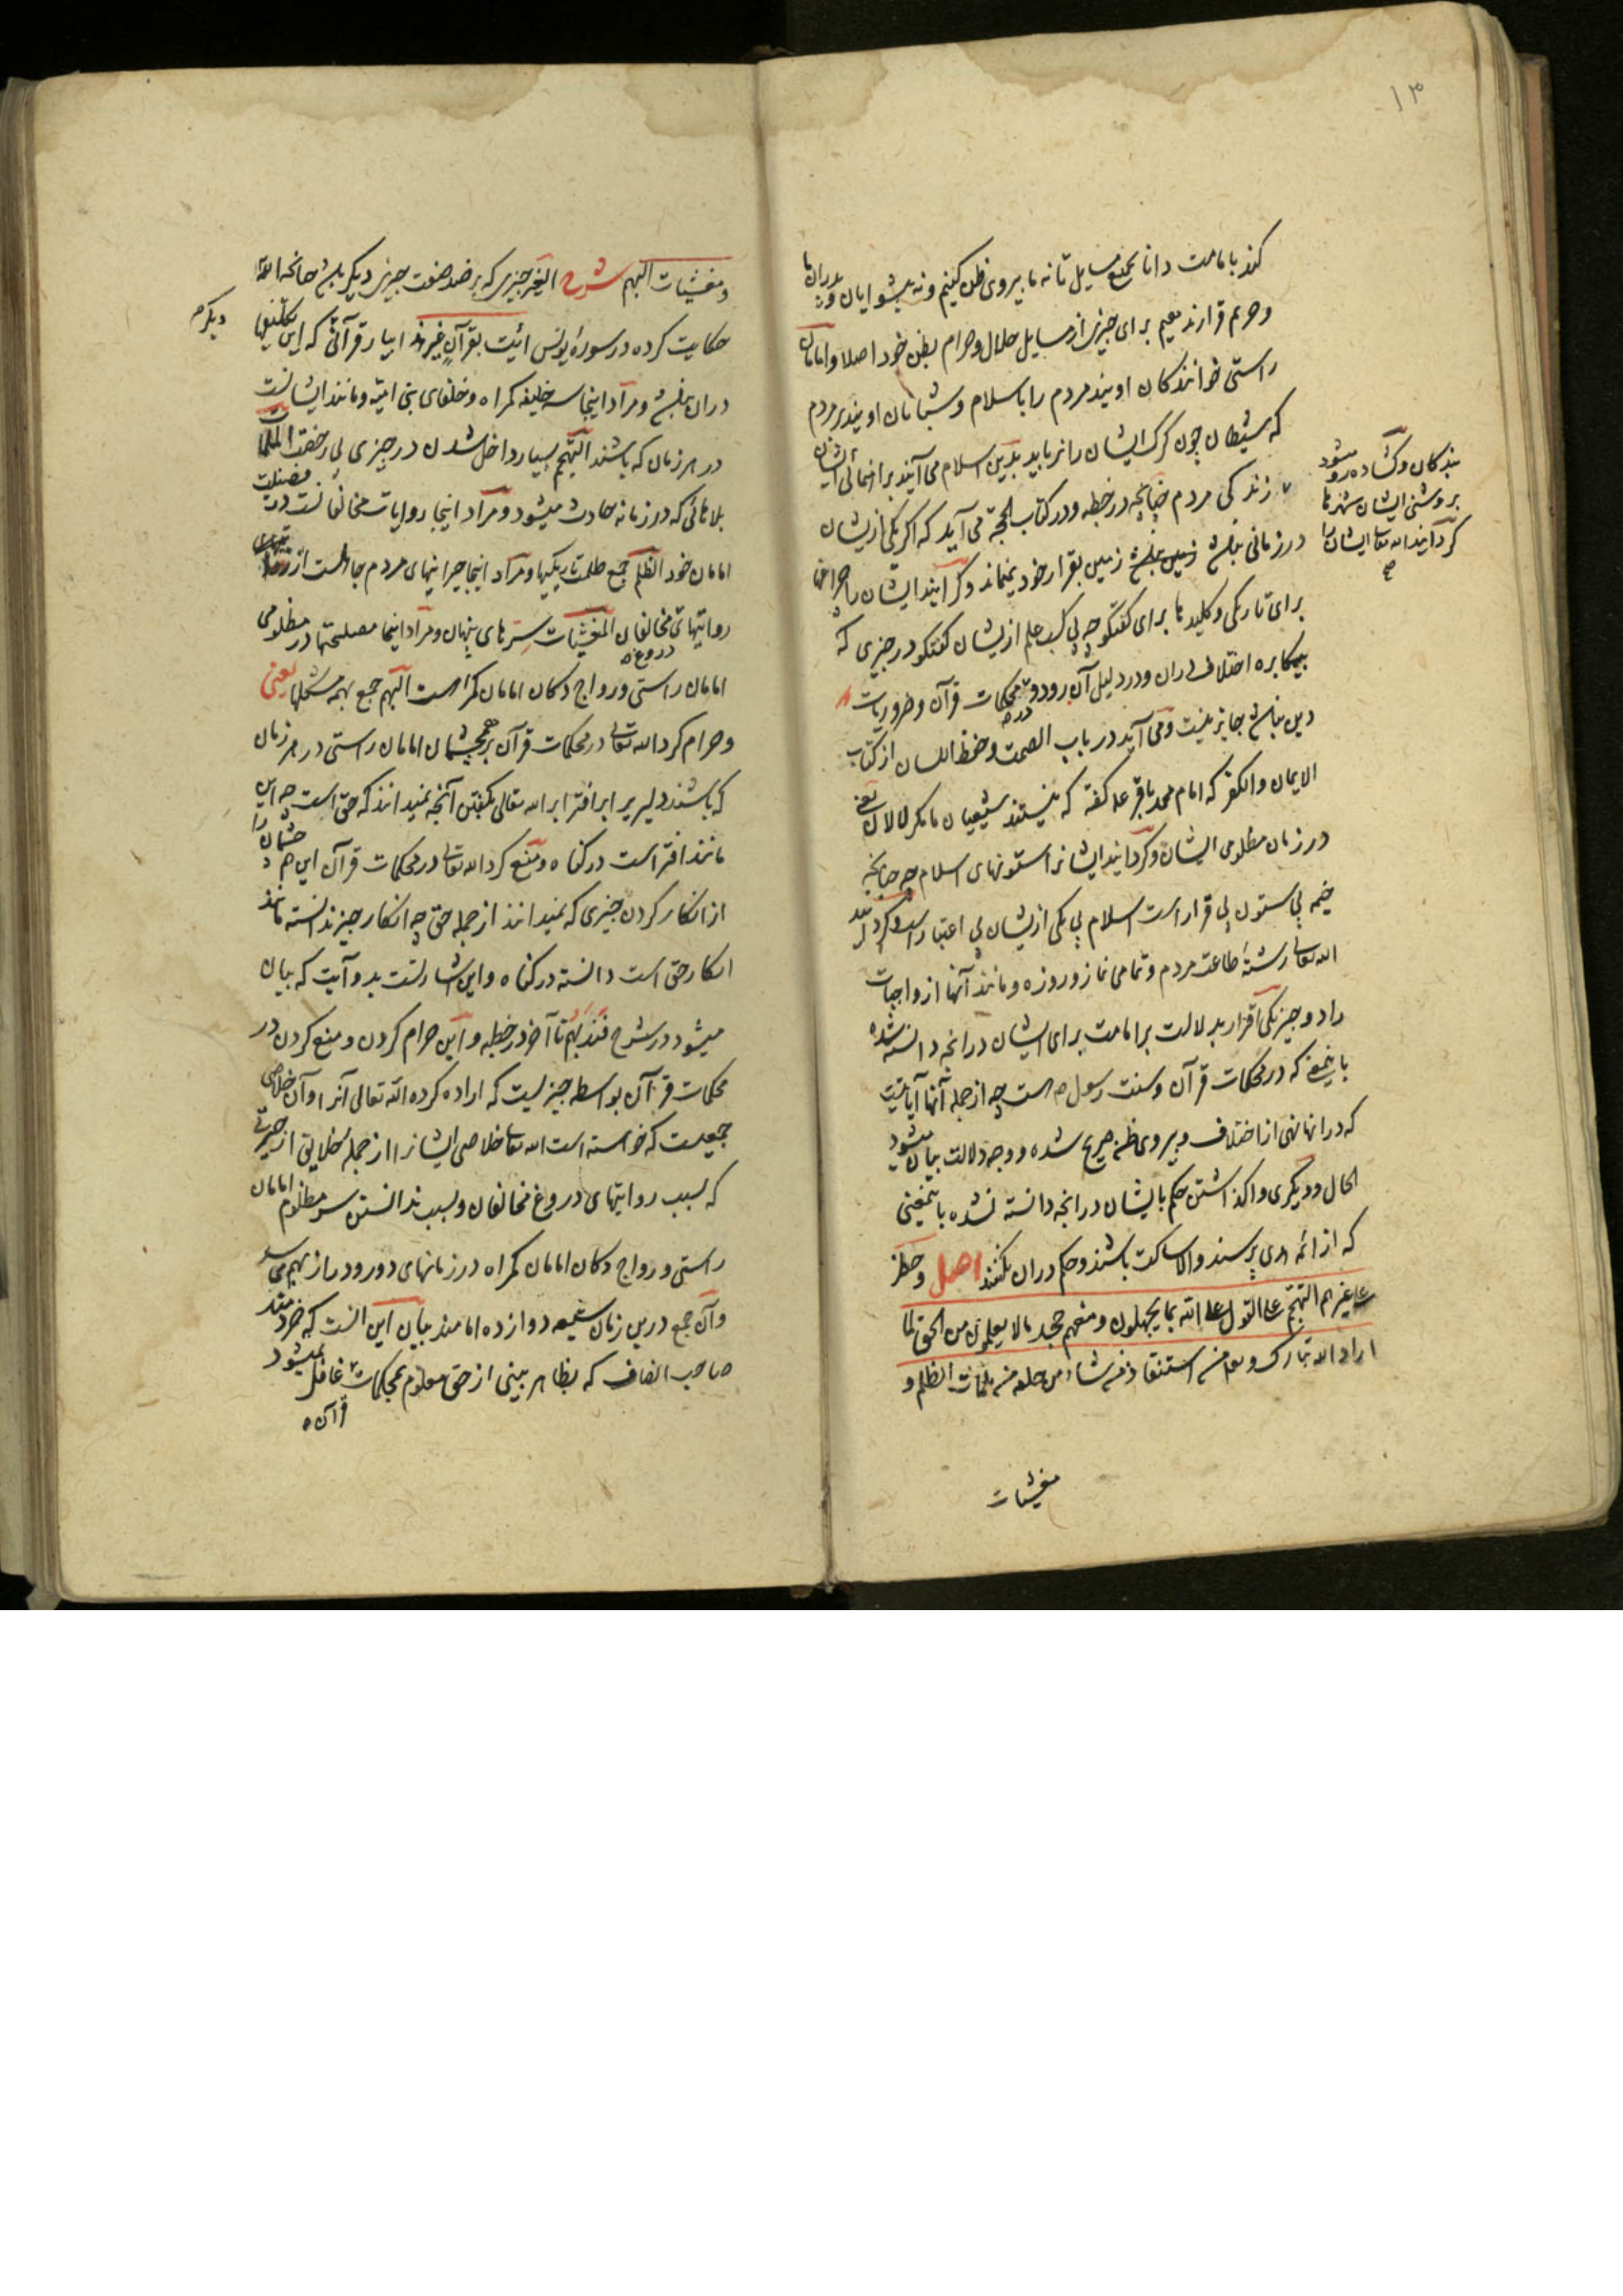 ۱۳
کند بامامت دانا بجمیع مسایل تا نه ما پیروی ظن کنیم و نه پیشوایان و پدران ما
و حرم قرار ندهیم برای چیزی از مسایل حلال و حرام بظن خود اصلا و امامان
راستی خوانندکان اویند مردم را باسلام و شبانان اویند بر مردم
که شیطان چون کرک ایشان را نرباید بدین اسلام می آیند براهنمائی ایشان
بندکان و کشاده رو میشود
بروشنی ایشان شهرها
کردانید الله تعالی ایشان را
زندکی مردم چنانچه در خطبه و در کتاب الحجة می آید که اکر یکی ازیشان
در زمانی نباشد زمین بقرار خود نمیماند و کردانید ایشان را چراغها
برای تاریکی و کلیدها برای کفتکو چه بی کسب علم ازیشان کفتکو در چیزی که
بیمکابره اختلاف دران و در دلیل آن رود و در محکمات قرآن و ضروریات
دین نباشد جایز نیست و می آید در باب الصمت و حفظ اللسان از کتاب
الایمان والکفر که امام محمد باقر ع کفته که نیستند شیعیان ما مکر لالان یعنی
در زمان مظلومی ایشان و کردانید ایشانرا ستونهای اسلام چه چنانچه
خیمه بی ستون بی قرار است اسلام بی یکی ازیشان بی اعتبار است و کردانید
الله تعالی رشتهٔ طاعت مردم و تمامی نماز و روزه و مانند آنها از واجبات
را دو چیز یکی اقرار بدلالت بر امامت برای ایشان در انچه دانسته شده
باینمعنی که در محکمات قرآن و سنت رسول ص است چه از جمله آنها آیاتیست
که در انها نهی از اختلاف و پیروی ظن صریح شده و وجه دلالت بیان میشود
الحال و دیکری واکذاشتن حکم بایشان در انچه دانسته نشده باینمعنی
که از ائمه هدی پرسند والا ساکت باشند و حکم دران نکنند اصل و حظر
علی غیرهم التهجم علی القول علی الله بما یجهلون و منعهم جحد ما لا یعلمون من الحق لما
اراد الله تبارک و تعالی من استنقاذ من شاء من خلقه من ملمات الظلم و
مغشیات
و مغشیات البهم شرح الغیر چیزی که بر ضد صفت چیزی دیکر باشد چنانچه الله تعالی
حکایت کرده در سورهٔ یونس ائت بقرآن غیر هذا بیار قرآنی که این تکلیفها
دیکر
دران نباشد و مراد اینجا سه خلیفه کمراه و خلفای بنی امیه و مانند ایشانست
در هر زمان که باشند التهجم بسیار داخل شدن در چیزی بی رخصت الملمات
بلاهائی که در زمانه حادث میشود و مراد اینجا روایات مخالفانست در فضیلت
امامان خود الظلم جمع ظلمت تاریکیها و مراد اینجا حیرانیهای مردم جاهلست از
روایتهای دروغ مخالفان المغشیات سترهای پنهان و مراد اینجا مصلحتها در مظلومی
امامان راستی و رواج دکان امامان کمراه است البهم جمع بهمه مشکلها یعنی
و حرام کرد الله تعالی در محکمات قرآن بر همچشمان امامان راستی در هر زمان
که باشند دلیری بر افترا بر الله تعالی بکفتن آنچه نمیدانند که حق است چه این
مانند افتر است در کناه و منع کرد الله تعالی در محکمات قرآن این همچشمان را
از انکار کردن چیزی که نمیدانند از جمله حق چه انکار چیز ندانسته مانند
انکار حق است دانسته در کناه و این اشارتست بدو آیت که بیان
میشود در شرح فندبهم تا آخر در خطبه و این حرام کردن و منع کردن در
محکمات قرآن بواسطه چیزیست که اراده کرده الله تعالی آنرا و آن خلاصی
جمعیست که خواسته است الله تعالی خلاصی ایشانرا از جملهٔ خلایق از حیرتی
که بسبب روایتهای دروغ مخالفان و بسبب ندانستن سر مظلومی امامان
راستی و رواج دکان امامان کمراه در زمانهای دور و دراز بهم میرسد
و آن جمع درین زمان شیعه دوازده امامند بیان این آنست که خردمند
صاحب انصاف که بظاهر بینی از حق معلوم بمحکمات قرآن غافل نمیشود